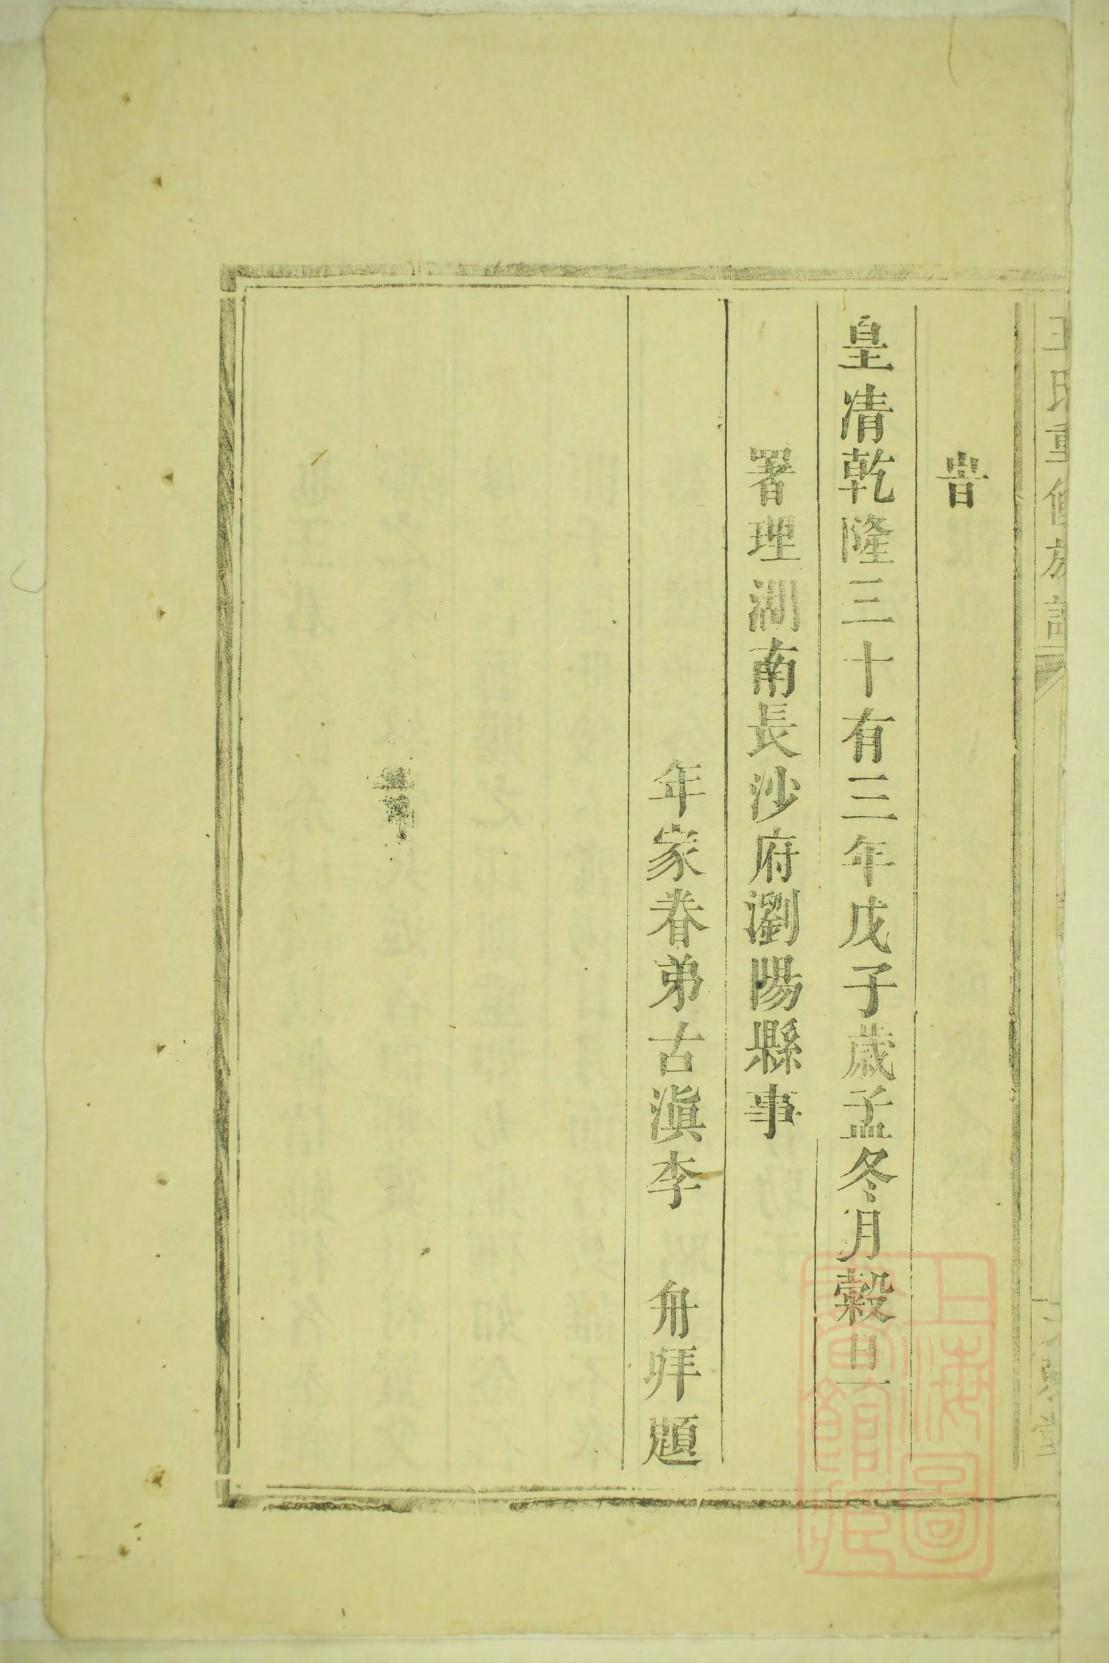 王氏重修族譜
旹
皇清乾隆三十有三年戊子歲孟冬月穀旦
署理湖南長沙府瀏陽縣事
年家眷弟古滇李　冉拜題
上海圖書館藏